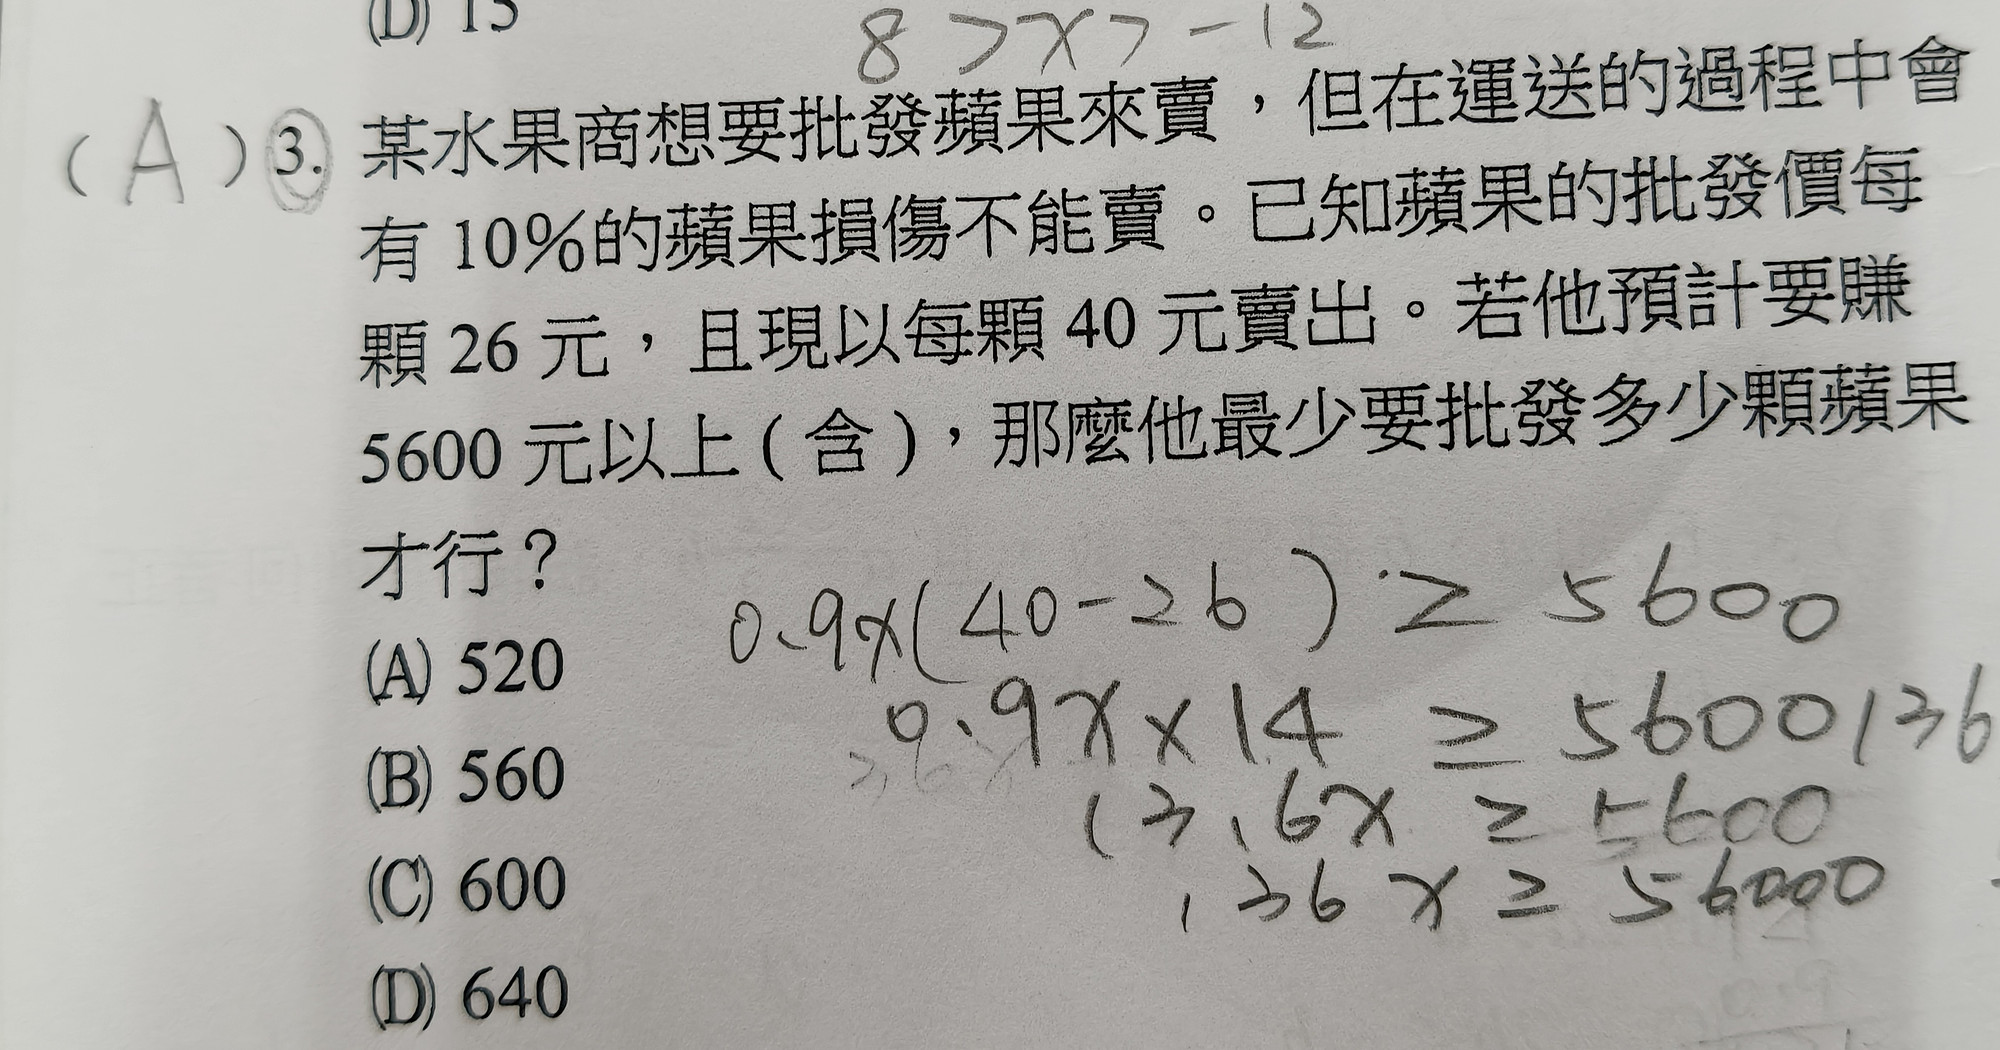 (D) 15
8 > x > -12
(A) 3. 某水果商想要批發蘋果來賣，但在運送的過程中會
有 10%的蘋果損傷不能賣。已知蘋果的批發價每
顆 26 元，且現以每顆 40 元賣出。若他預計要賺
5600 元以上(含)，那麼他最少要批發多少顆蘋果
才行？
0.9x(40-26) ≥ 5600
(A) 520
0.9x × 14 ≥ 5600 136
(B) 560
13.6x ≥ 5600
(C) 600
136x ≥ 56000
(D) 640